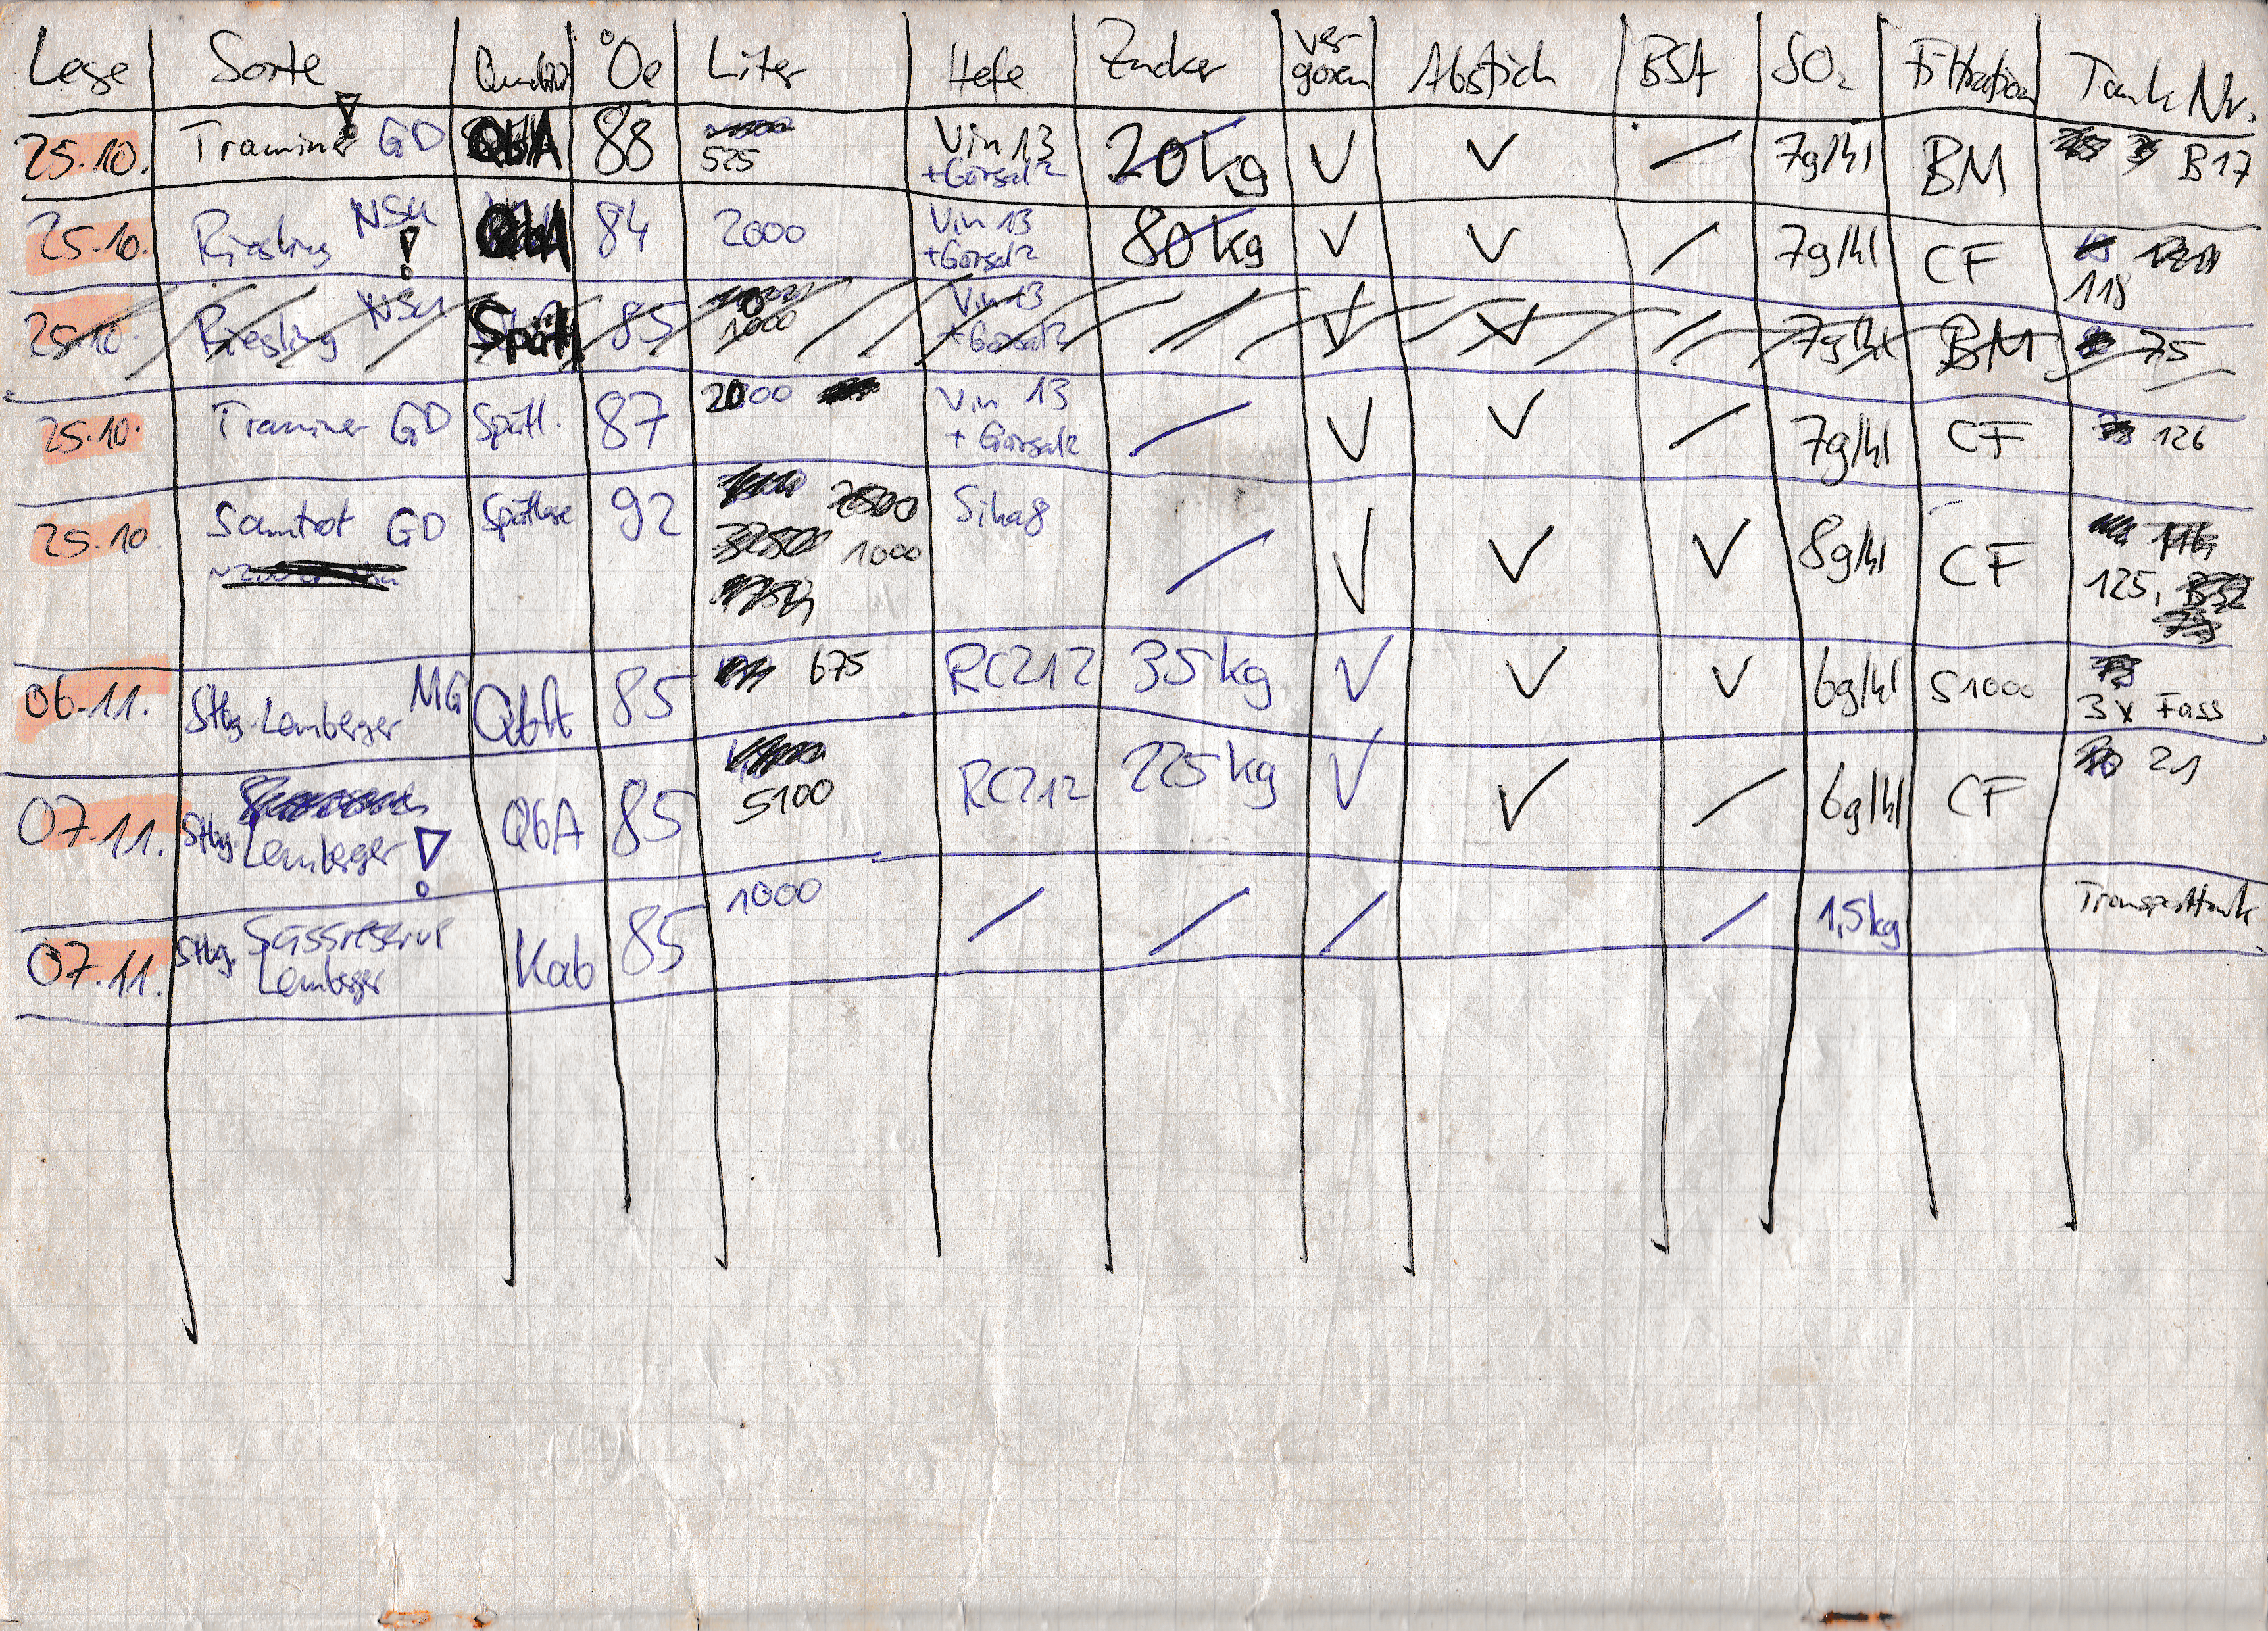 Lese Sorte Qualität °Oe Liter Hefe Zucker ver-goren Abstich BSA SO₂ Filtration Tank Nr.
25.10. Traminer ! GD QbA 88 525 Vin 13 + Gärsalz 20 kg ✓ ✓ / 7g/hl BM B17
25.10. Riesling NSU ! QbA 84 2000 Vin 13 + Gärsalz 80 kg ✓ ✓ / 7g/hl CF 118
25.10. Riesling NSU Spätl. 85 1000 Vin 13 + Gärsalz / ✓ ✓ / 7g/hl BM 75
25.10. Traminer GD Spätl. 87 2000 Vin 13 + Gärsalz / ✓ ✓ / 7g/hl CF 126
25.10 Samtrot GD Spätlese 92 1000 Siha8 / ✓ ✓ ✓ 8g/hl CF 125,
06.11. Stbg. Lemberger MG QbA 85 675 RC212 35 kg ✓ ✓ ✓ 6g/hl S1000 3x Fass
07.11. Stbg. Lemberger ! QbA 85 5100 RC212 225 kg ✓ ✓ / 6g/hl CF 21
07.11. Stbg. Süssreserve Lemberger Kab 85 1000 / / / / 1,5kg Transporttank